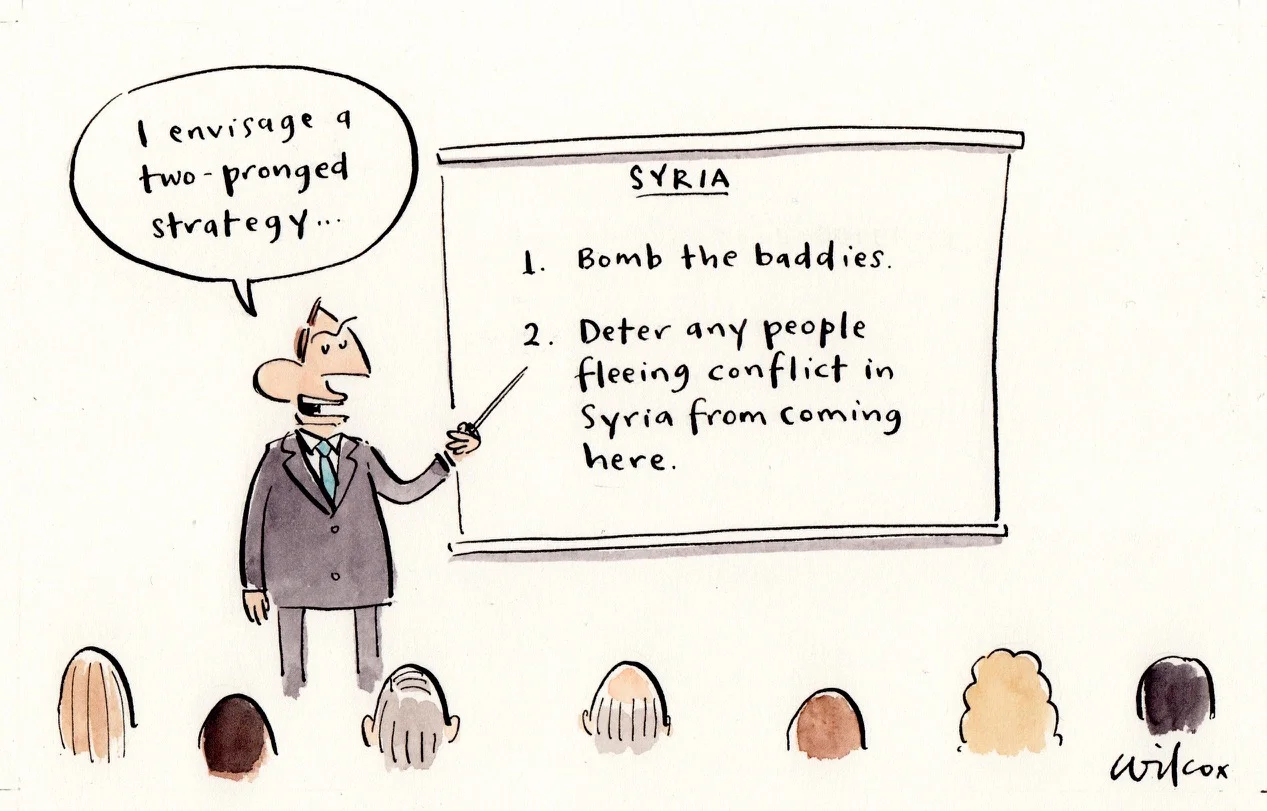 I envisage a
two-pronged
strategy...
SYRIA
1. Bomb the baddies.
2. Deter any people
fleeing conflict in
Syria from coming
here.
Wilcox